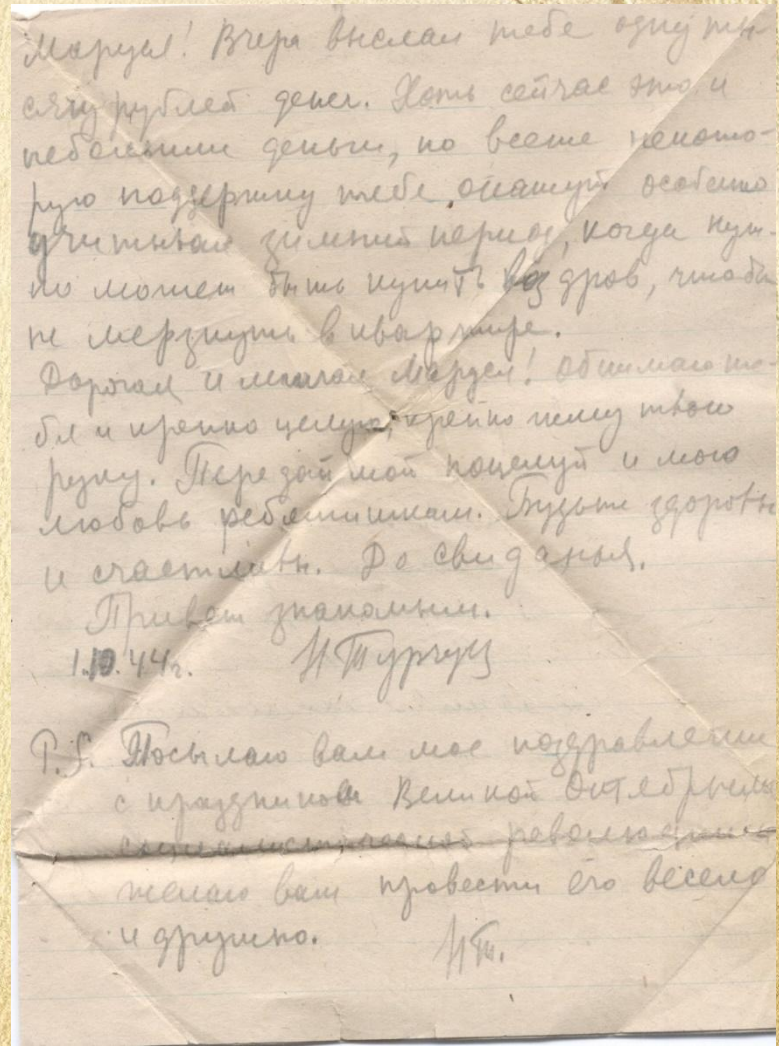 Маруся! Вчера выслал тебе одну ты-
сячу рублей денег. Хоть сейчас это и
небольшие деньги, но всеже некото-
рую поддержку тебе окажут особенно
учитывая зимний период, когда нуж-
но может быть купить воз дров, чтобы
не мерзнуть в квартире.
Дорогая и милая Маруся! Обнимаю те-
бя и крепко целую, крепко жму твою
руку. Передай мой поцелуй и мою
любовь ребятишкам. Будьте здоровы
и счастливы. До свиданья.
Привет знакомым.
1.10.44г. Н Турчуц
P.S. Посылаю вам мое поздравление
с праздником Великой Октябрьской
социалистической революции
желаю вам провести его весело
и дружно. НТ.